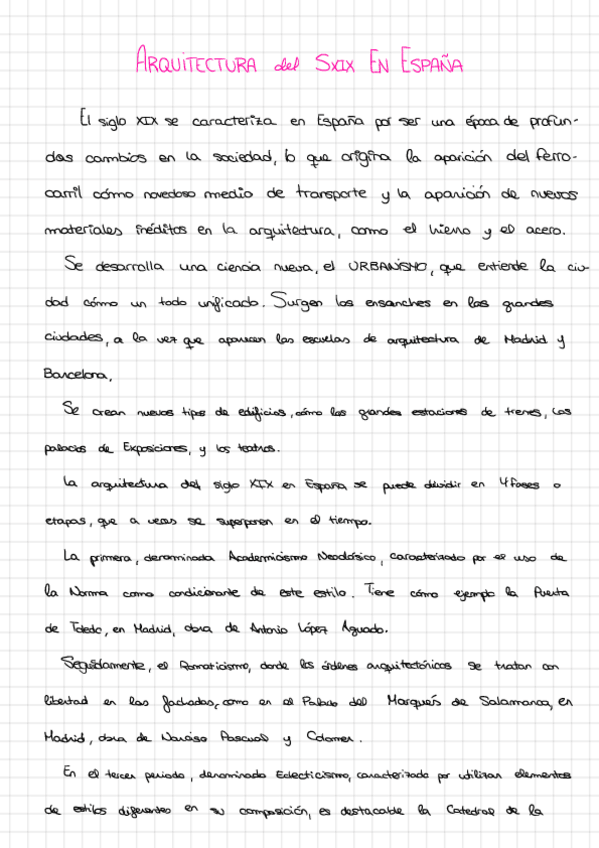 ARQUITECTURA del SXIX EN ESPAÑA
El siglo XIX se caracteriza en España por ser una época de profun-
dos cambios en la sociedad, lo que origina la aparición del ferro-
carril cómo novedoso medio de transporte y la aparición de nuevos
materiales inéditos en la arquitectura, como el hierro y el acero.
Se desarrolla una ciencia nueva, el URBANISMO, que entiende la ciu-
dad cómo un todo unificado. Surgen los ensanches en las grandes
ciudades, a la vez que aparecen las escuelas de arquitectura de Madrid y
Barcelona.
Se crean nuevos tipos de edificios, cómo las grandes estaciones de trenes, los
palacios de Exposiciones, y los teatros.
La arquitectura del siglo XIX en España se puede dividir en 4 fases o
etapas, que a veces se superponen en el tiempo.
La primera, denominada Academicismo Neoclásico, caracterizado por el uso de
la Norma como condicionante de este estilo. Tiene cómo ejemplo la Puerta
de Toledo, en Madrid, obra de Antonio López Aguado.
Seguidamente, el Romaticismo, donde los órdenes arquitectónicos se tratan con
libertad en las fachadas, como en el Palacio del Marqués de Salamanca, en
Madrid, obra de Narciso Pascual y Colomer.
En el tercer periodo, denominado Eclecticismo, caracterizado por utilizar elementos
de estilos diferentes en su composición, es destacable la Catedral de la